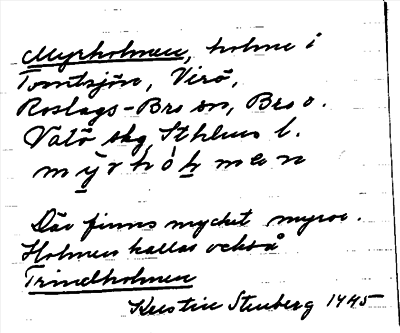 Myrholmen, holme i
Tomtsjön, Virö,
Roslags-Bro sn, Bro o.
Vätö skg, Sthlms l.
Där finns mycket myror.
Holmen kallas också
Trindholmen
Kerstin Stenberg 1945